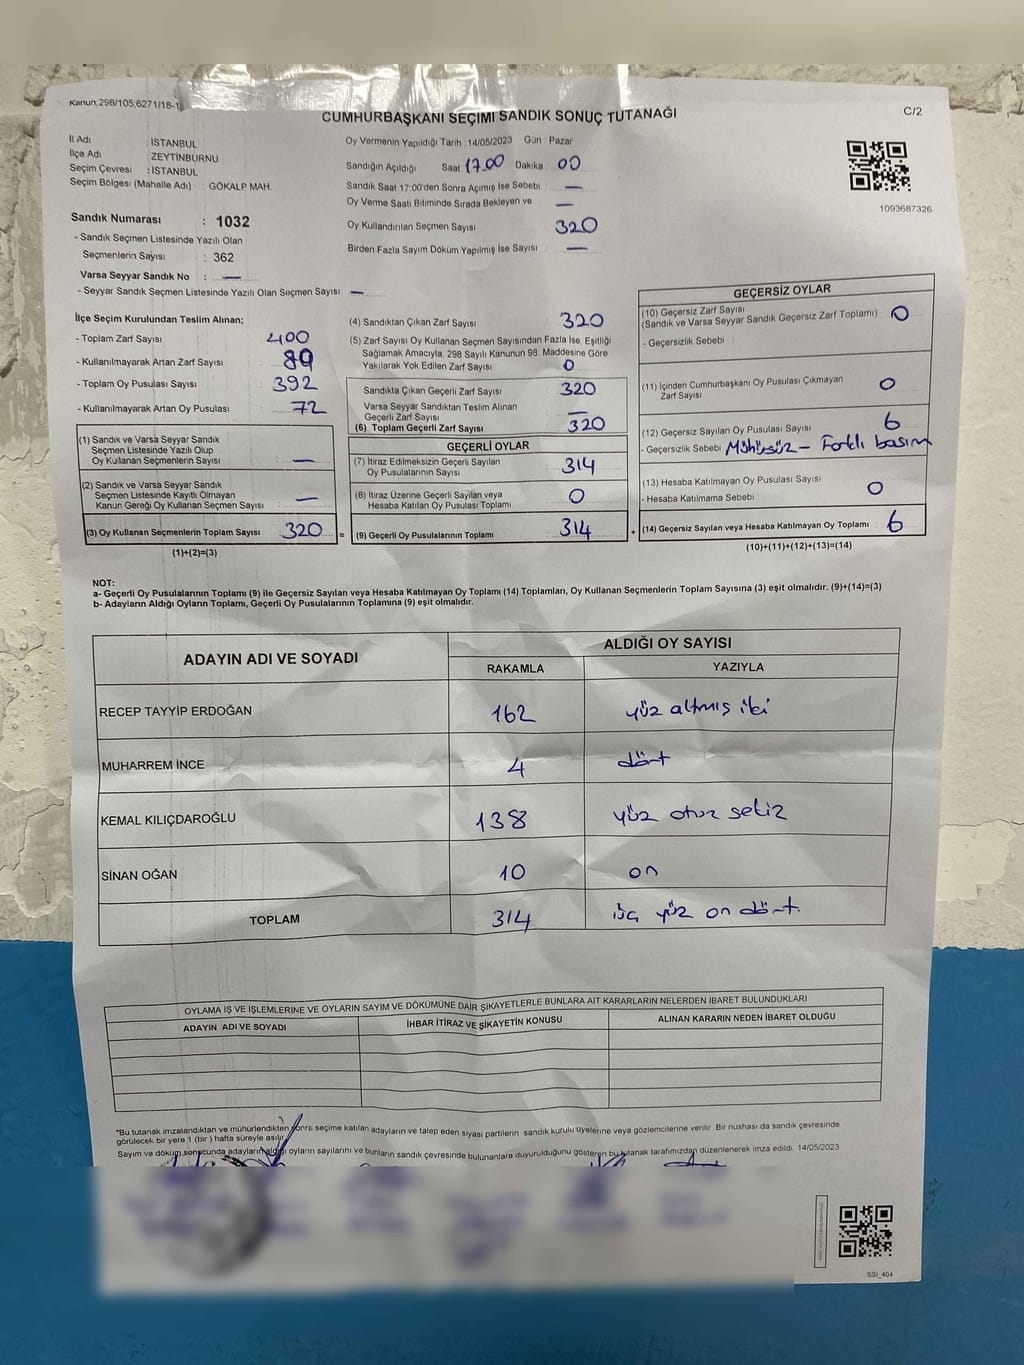 Kanun;298/105,6271/18-1
CUMHURBAŞKANI SEÇİMİ SANDIK SONUÇ TUTANAĞI
C/2
İl Adı : İSTANBUL
İlçe Adı : ZEYTİNBURNU
Seçim Çevresi : İSTANBUL
Seçim Bölgesi (Mahalle Adı) : GÖKALP MAH.
Oy Vermenin Yapıldığı Tarih : 14/05/2023 Gün : Pazar
Sandığın Açıldığı Saat 17.00 Dakika 00
Sandık Saat 17:00'den Sonra Açımış İse Sebebi : —
Oy Verme Saati Bitiminde Sırada Bekleyen ve —
Oy Kullandırılan Seçmen Sayısı 320
Birden Fazla Sayım Döküm Yapılmış İse Sayısı : —
1093687326
Sandık Numarası : 1032
- Sandık Seçmen Listesinde Yazılı Olan
Seçmenlerin Sayısı : 362
Varsa Seyyar Sandık No : —
- Seyyar Sandık Seçmen Listesinde Yazılı Olan Seçmen Sayısı: —
İlçe Seçim Kurulundan Teslim Alınan;
- Toplam Zarf Sayısı 400
- Kullanılmayarak Artan Zarf Sayısı : 80
- Toplam Oy Pusulası Sayısı : 392
- Kullanılmayarak Artan Oy Pusulası 72
(1) Sandık ve Varsa Seyyar Sandık
Seçmen Listesinde Yazılı Olup
Oy Kullanan Seçmenlerin Sayısı —
(2) Sandık ve Varsa Seyyar Sandık
Seçmen Listesinde Kayıtlı Olmayan
Kanun Gereği Oy Kullanan Seçmen Sayısı —
(3) Oy Kullanan Seçmenlerin Toplam Sayısı 320
(1)+(2)=(3)
(4) Sandıktan Çıkan Zarf Sayısı 320
(5) Zarf Sayısı Oy Kullanan Seçmen Sayısından Fazla İse, Eşitliği
Sağlamak Amacıyla, 298 Sayılı Kanunun 98. Maddesine Göre
Yakılarak Yok Edilen Zarf Sayısı 0
Sandıkta Çıkan Geçerli Zarf Sayısı 320
Varsa Seyyar Sandıktan Teslim Alınan
Geçerli Zarf Sayısı —
(6) Toplam Geçerli Zarf Sayısı 320
GEÇERLİ OYLAR
(7) İtiraz Edilmeksizin Geçerli Sayılan
Oy Pusulasının Sayısı 314
(8) İtiraz Üzerine Geçerli Sayılan veya
Hesaba Katılan Oy Pusulası Toplamı 0
= (9) Geçerli Oy Pusulalarının Toplamı 314 +
GEÇERSİZ OYLAR
(10) Geçersiz Zarf Sayısı
(Sandık ve Varsa Seyyar Sandık Geçersiz Zarf Toplamı) 0
- Geçersizlik Sebebi :
(11) İçinden Cumhurbaşkanı Oy Pusulası Çıkmayan
Zarf Sayısı 0
(12) Geçersiz Sayılan Oy Pusulası Sayısı 6
- Geçersizlik Sebebi Mühürsüz – Farklı basım
(13) Hesaba Katılmayan Oy Pusulası Sayısı 0
- Hesaba Katılmama Sebebi :
(14) Geçersiz Sayılan veya Hesaba Katılmayan Oy Toplamı : 6
(10)+(11)+(12)+(13)=(14)
NOT:
a- Geçerli Oy Pusulalarının Toplamı (9) ile Geçersiz Sayılan veya Hesaba Katılmayan Oy Toplamı (14) Toplamları, Oy Kullanan Seçmenlerin Toplam Sayısına (3) eşit olmalıdır. (9)+(14)=(3)
b- Adayların Aldığı Oyların Toplamı, Geçerli Oy Pusulalarının Toplamına (9) eşit olmalıdır.
ADAYIN ADI VE SOYADI ALDIĞI OY SAYISI
RAKAMLA YAZIYLA
RECEP TAYYİP ERDOĞAN 162 yüz altmış iki
MUHARREM İNCE 4 dört
KEMAL KILIÇDAROĞLU 138 yüz otuz sekiz
SİNAN OĞAN 10 on
TOPLAM 314 üç yüz on dört.
OYLAMA İŞ VE İŞLEMLERİNE VE OYLARIN SAYIM VE DÖKÜMÜNE DAİR ŞİKAYETLERLE BUNLARA AİT KARARLARIN NELERDEN İBARET BULUNDUKLARI
ADAYIN ADI VE SOYADI İHBAR İTİRAZ VE ŞİKAYETİN KONUSU ALINAN KARARIN NEDEN İBARET OLDUĞU
*Bu tutanak imzalandıktan ve mühürlendikten sonra seçime katılan adayların ve talep eden siyasi partilerin sandık kurulu üyelerine veya gözlemcilerine verilir. Bir nüshası da sandık çevresinde
görülecek bir yere 1 (bir ) hafta süreyle asılır.
Sayım ve döküm sonucunda adayların aldığı oyların sayılarını ve bunların sandık çevresinde bulunanlara duyurulduğunu gösteren bu tutanak tarafımızdan düzenlenerek imza edildi. 14/05/2023
SSİ_404